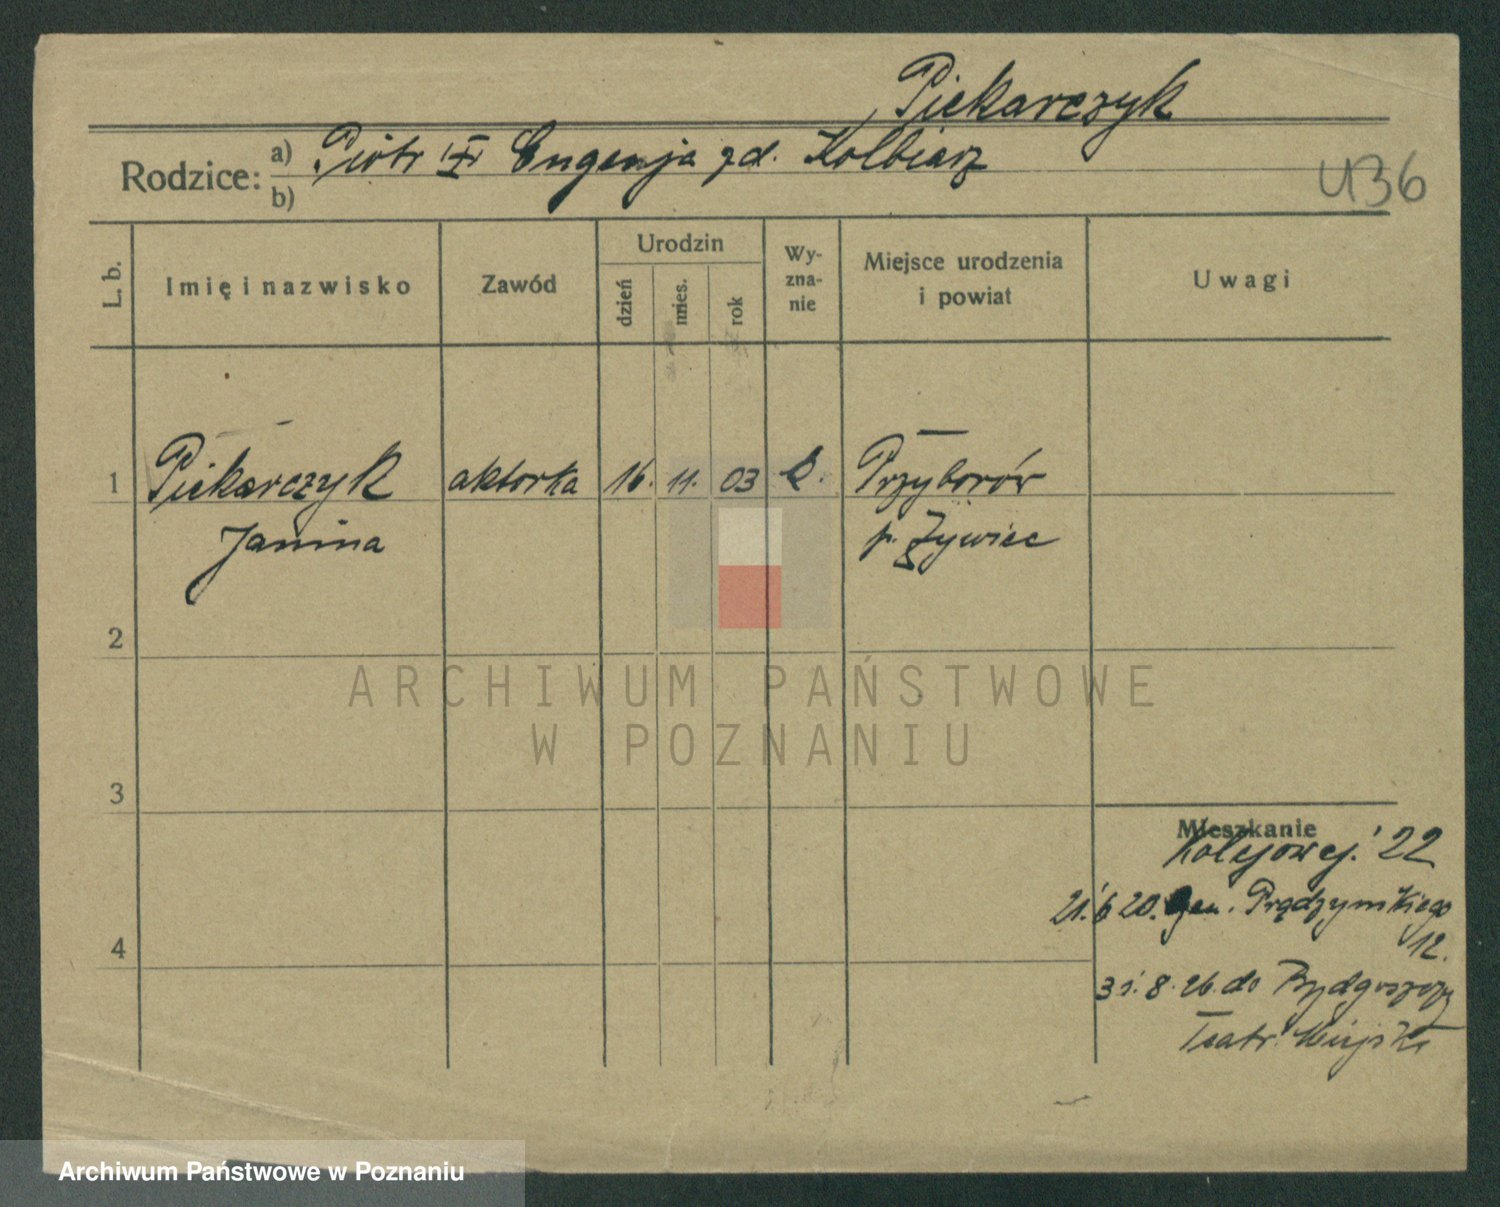 Piekarczyk
Rodzice: a) Piotr i Eugenja zd. Kolbiarz
b)
U36
L. b.
Imię i nazwisko
Zawód
Urodzin
dzień
mies.
rok
Wy-
zna-
nie
Miejsce urodzenia
i powiat
Uwagi
1 Piekarczyk aktorka 16. 11. 03 k. Przyborów
Janina p. Żywiec
2
3
4
Mieszkanie
Kolejowej. 22
21.6 20. Gen. Prądzyńskiego
12.
31. 8. 26. do Bydgoszczy
Teatr Miejski
ARCHIWUM PAŃSTWOWE
W POZNANIU
Archiwum Państwowe w Poznaniu